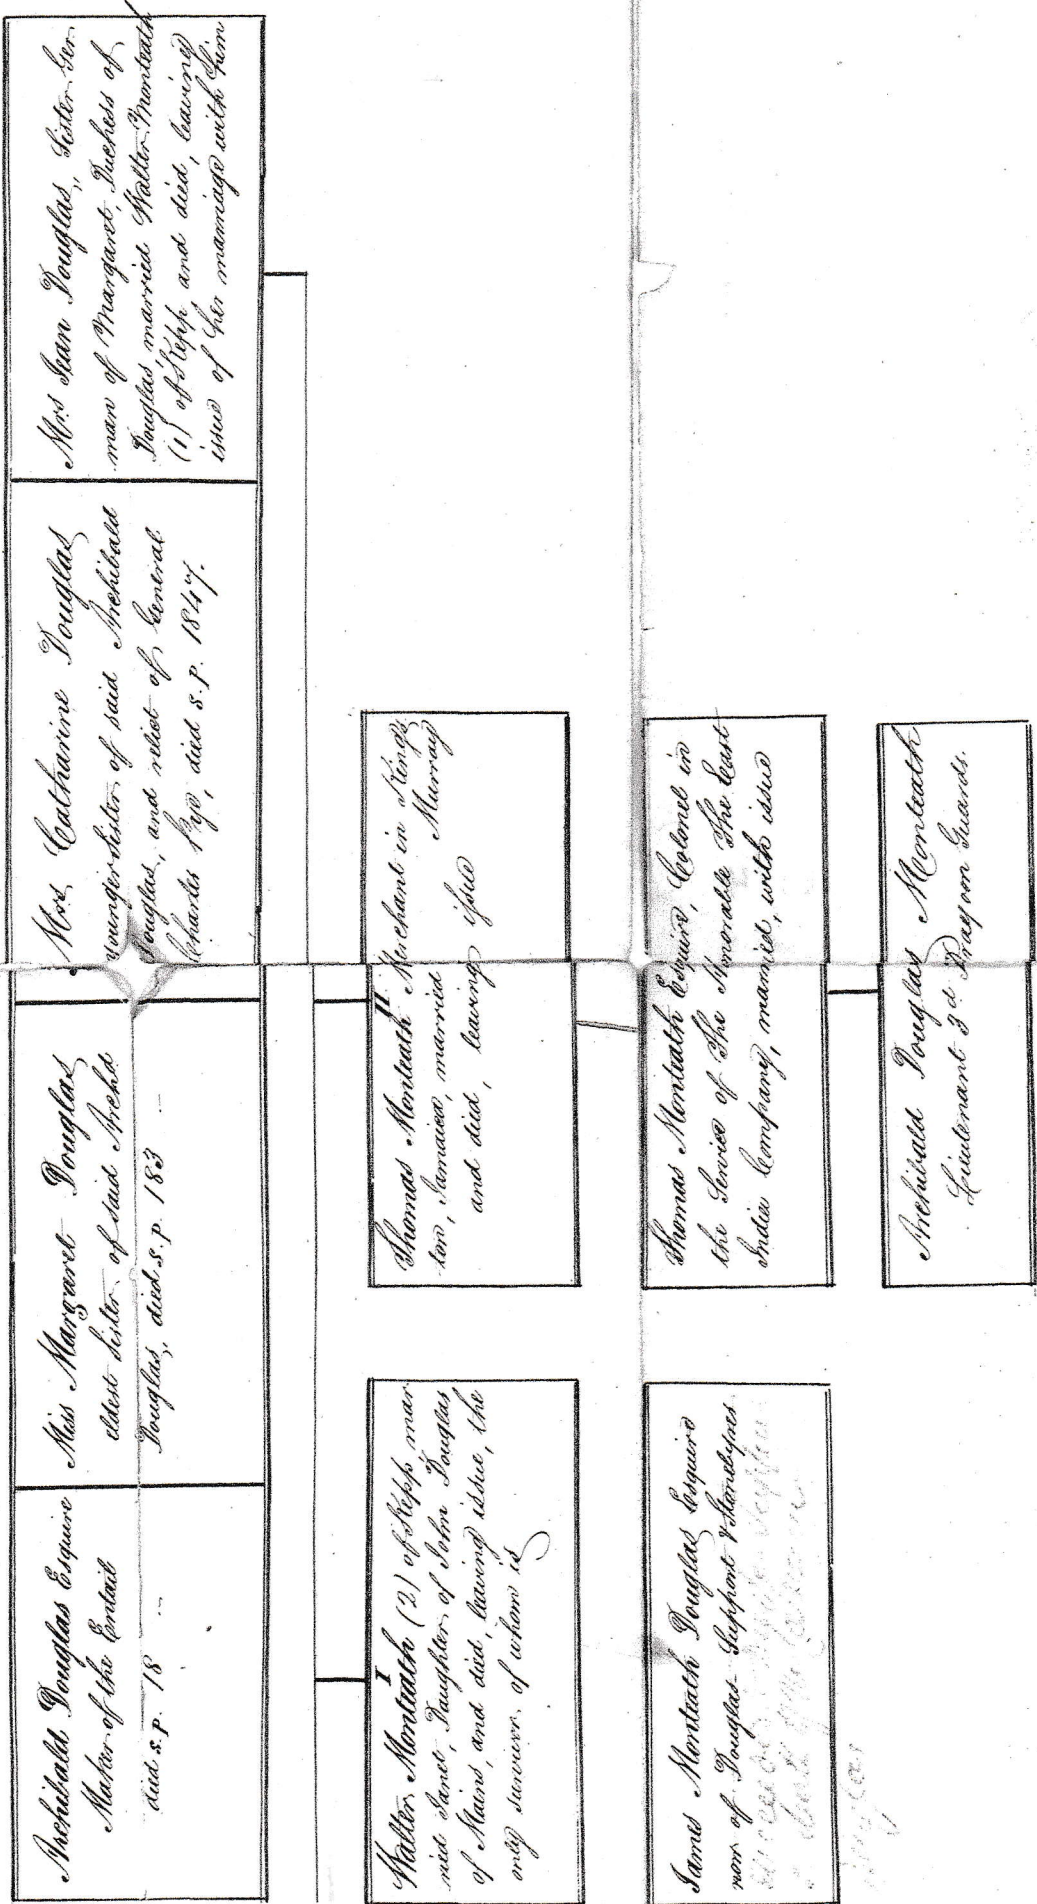 Archibald Douglas Esquire
Maker of the Entail
died s.p. 18 --
Miss Margaret Douglas
eldest Sister of said Archd
Douglas, died s.p. 183 --
Mrs Catharine Douglas
younger Sister of said Archibald
Douglas, and relict of General
Charles died s.p. 1847.
Mrs Jean Douglas, Sister Ger-
man of Margaret, Duchess of
Douglas married Walter Monteath
(1) of Kepp and died, leaving
issue of her marriage with him
I
Walter Monteath (2) of Kepp mar-
ried Janet, Daughter of John Douglas
of Mains, and died, leaving issue, the
only survivr. of whom is
II
Thomas Monteath Merchant in Kings
ton, Jamaica, married Murray
and died, leaving issue
James Monteath Douglas Esquire
now of Douglas-Support & Stonebyres
Thomas Monteath Esquire, Colonel in
the Service of The Honorable The East
India Company, married, with issue
Archibald Douglas Monteath
Lieutenant 3d Dragoon Guards.